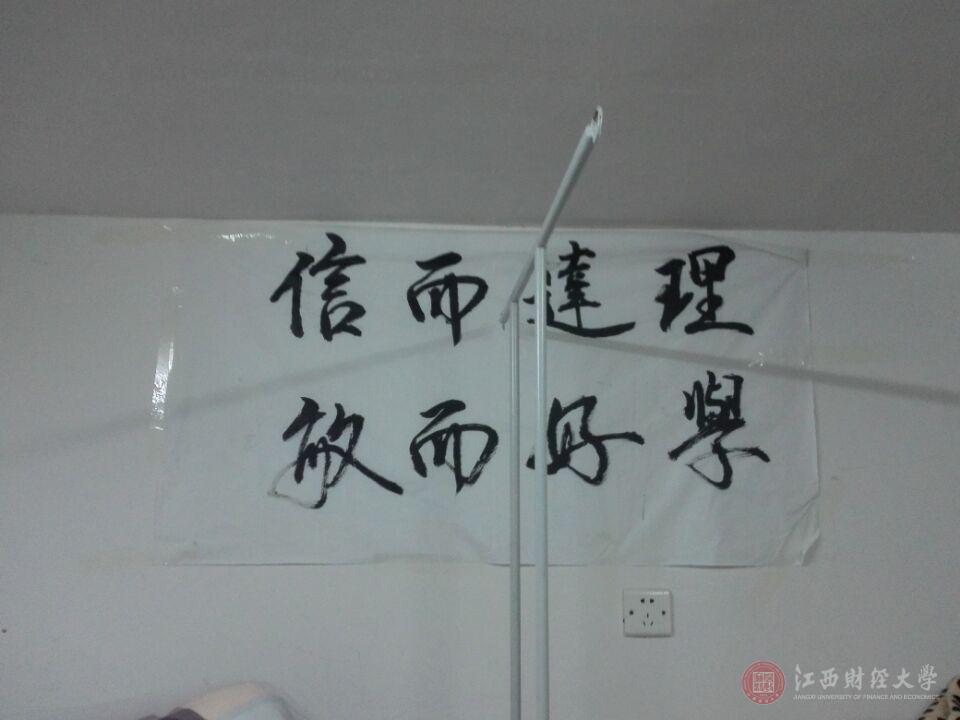 信而達理
敏而好學
江西财经大学
JIANGXI UNIVERSITY OF FINANCE AND ECONOMICS